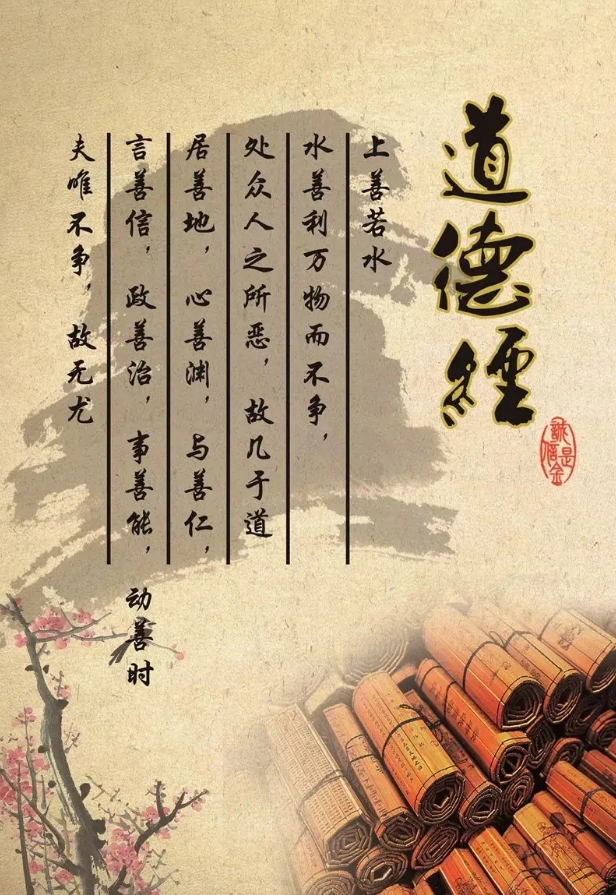 道德經
誠信是金
上善若水
水善利万物而不争，
处众人之所恶，故几于道
居善地，心善渊，与善仁，
言善信，政善治，事善能，动善时
夫唯不争，故无尤